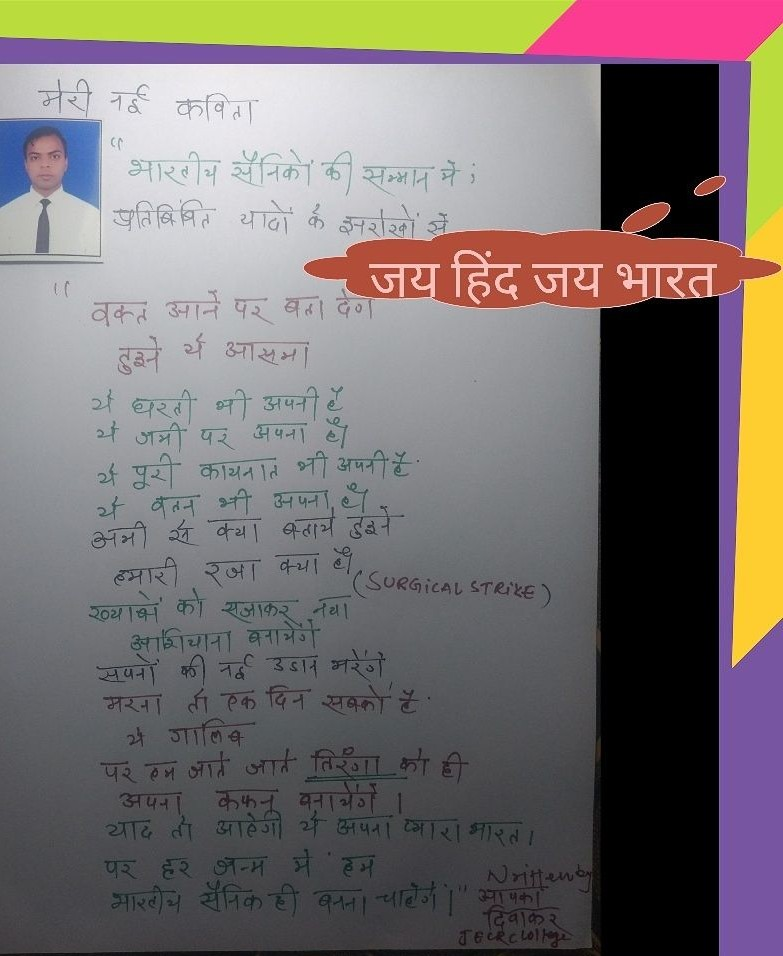 मेरी नई कविता
"भारतीय सैनिकों की सम्मान मे;
प्रतिबिंबित यादों के झरोखों से
जय हिंद जय भारत
"वक्त आने पर बता देगे
तुझे ये आसमा
ये धरती भी अपनी है
ये जमी पर अपना है।
ये पूरी कायनात भी अपनी है
ये वतन भी अपना है।
अभी से क्या बताये तुझे
हमारी रजा क्या है।
(SURGICAL STRIKE)
ख्याबों को सजाकर नया
आशियाना बनायेंगे
सपनों की नई उडान भरेंगे
मरना तो एक दिन सबको है
ये गालिब
पर हम जाते जाते तिरंगा को ही
अपना कफन बनायेंगे।
याद तो आऐगी ये अपना प्यारा भारत।
पर हर जन्म मे हम
भारतीय सैनिक ही बनना चाहेगे।"
Written by
आपका
दिवाकर
JECRC College